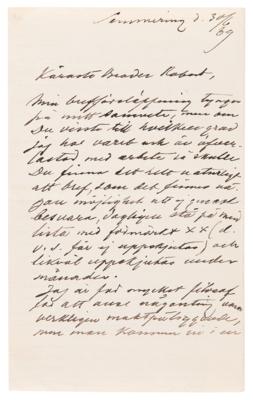 Semmering d. 30/
69
Käraste Broder Robert,
Min brefförsläppning tynger
på mitt samvete, men om
Du visste till hvilken grad
jag har varit och är öfver-
lastad med arbete så skulle
Du finna det rätt naturligt
att bref, som det finnes nå-
gon möjlighet att ej genast
besvara, dagligen stå på min
lista med förmärket x x (d.
v. s. får ej uppskjutas) och
likväl uppskjutas under
månader.
Jag är för mycket filosof
för att anse någonting vara
verkligen maktpåliggande,
men man kommer in i en